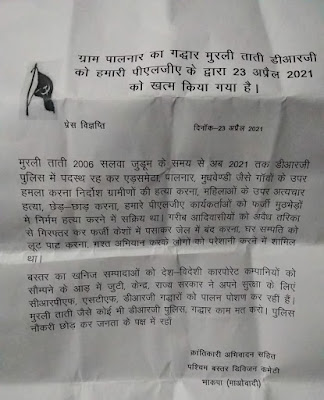 ग्राम पालनार का गद्दार मुरली ताती डीआरजी
को हमारी पीएलजीए के द्वारा 23 अप्रैल 2021
को खत्म किया गया है।
प्रेस विज्ञप्ति
दिनाँक–23 अप्रैल 2021
मुरली ताती 2006 सलवा जुडूम के समय से अब 2021 तक डीआरजी
पुलिस में पदस्थ रह कर एड़समेटा, पालनार, मुधवेण्डी जैसे गाँवों के उपर
हमला करना निर्दोश ग्रामीणों की हत्या करना, महिलाओं के उपर अत्यचार
हत्या, छेड़–छाड़ करना, हमारे पीएलजीए कार्यकर्ताओं को फर्जी मुठभेड़ों
में निर्मम हत्या करने में सक्रिय था। गरीब आदिवासीयों को अवैध तरिका
से गिरफ्तार कर फर्जी केशों में फसाकर जेल में बंद करना, घर सम्पति को
लूट पाट करना, गश्त अभियान करके लोगों को परेशानी करने में शामिल
था।
बस्तर का खनिज सम्पादाओं को देश–विदेशी कारपोरेट कम्पानियों को
सौंपने के आड़ में जुटी, केन्द्र, राज्य सरकार ने अपने सुरक्षा के लिए
सीआरपीएफ, एसटीएफ, डीआरजी गद्दारों को पालन पोशण कर रही हैं।
मुरली ताती जैसे कोई भी डीआरजी पुलिस, गद्दार काम मत करो। पुलिस
नौकरी छोड़ कर जनता के पक्ष में रहो
क्रांतिकारी अभिवादन सहित
पश्चिम बस्तर डिविजन कमेटी
भाकपा (माओवादी)